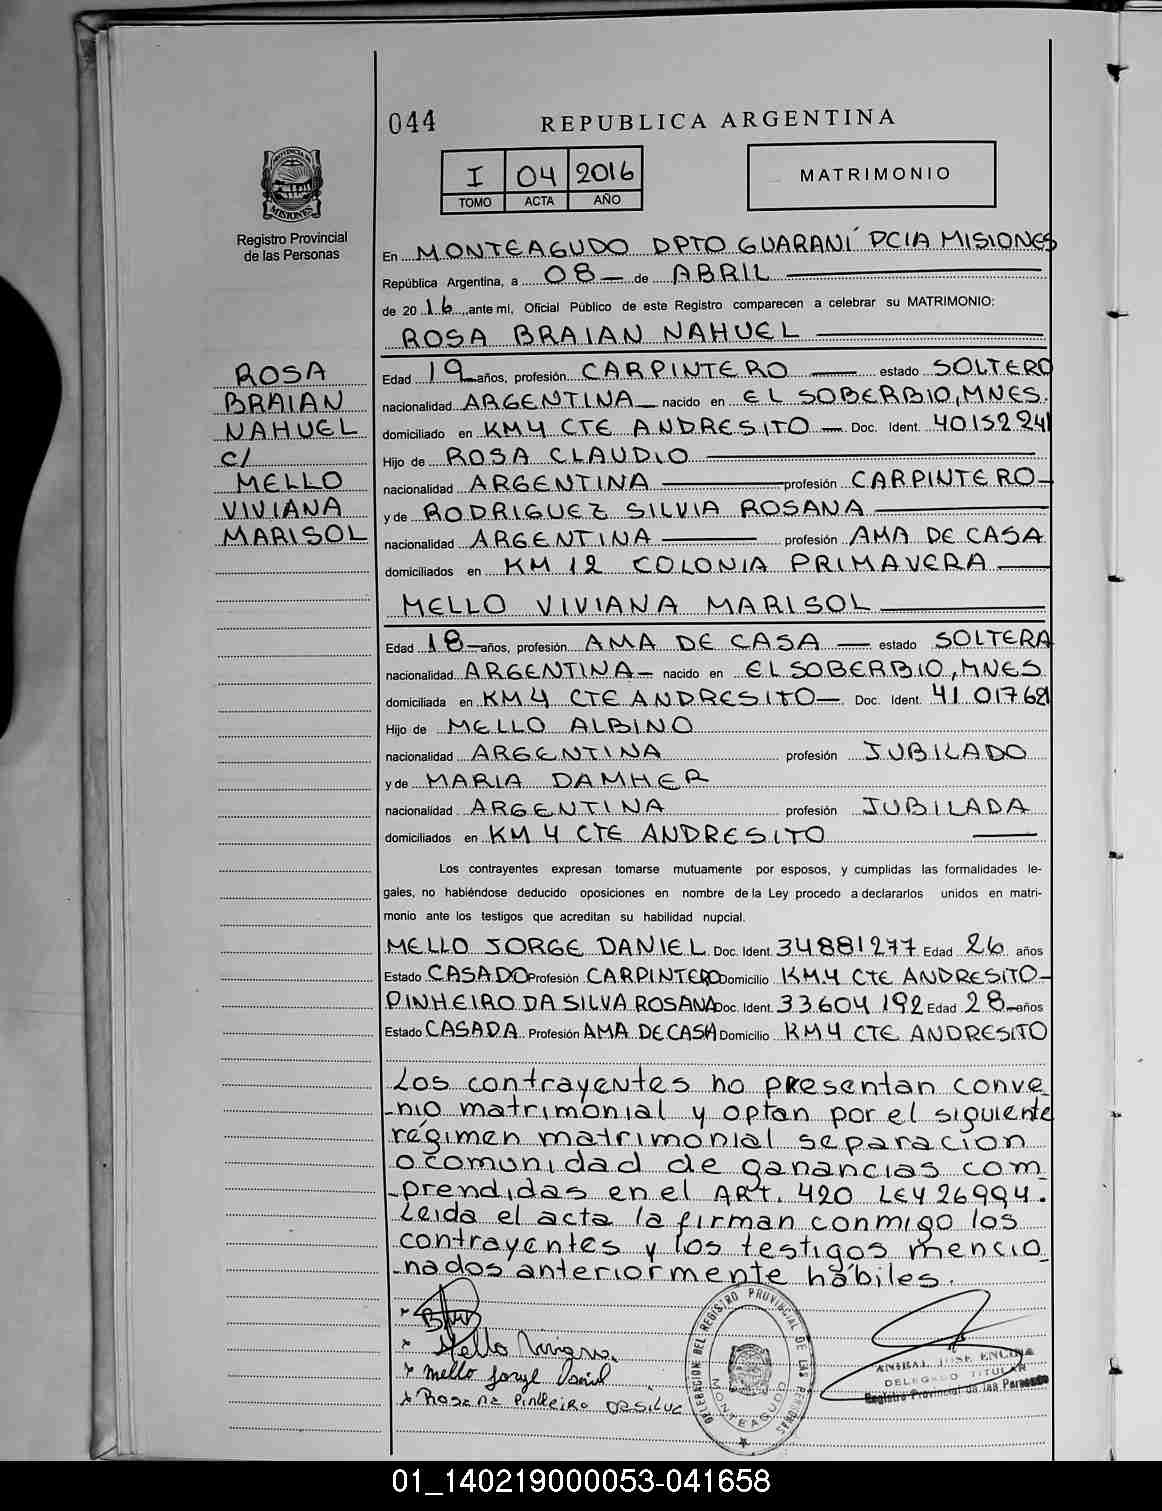 044 REPUBLICA ARGENTINA
PROVINCIA DE MISIONES
Registro Provincial
de las Personas
I 04 2016
TOMO ACTA AÑO
MATRIMONIO
En MONTEAGUDO DPTO GUARANÍ PCIA MISIONES
República Argentina, a 08 de ABRIL
de 2016, ante mi, Oficial Público de este Registro comparecen a celebrar su MATRIMONIO:
ROSA BRAIAN NAHUEL
ROSA
BRAIAN
NAHUEL
C/
MELLO
VIVIANA
MARISOL
Edad 19 años, profesión CARPINTERO estado SOLTERO
nacionalidad ARGENTINA nacido en EL SOBERBIO, MNES.
domiciliado en KM 4 CTE ANDRESITO Doc. Ident. 40152241
Hijo de ROSA CLAUDIO
nacionalidad ARGENTINA profesión CARPINTERO
y de RODRIGUEZ SILVIA ROSANA
nacionalidad ARGENTINA profesión AMA DE CASA
domiciliados en KM 12 COLONIA PRIMAVERA
MELLO VIVIANA MARISOL
Edad 18 años, profesión AMA DE CASA estado SOLTERA
nacionalidad ARGENTINA nacido en EL SOBERBIO, MNES.
domiciliada en KM 4 CTE ANDRESITO Doc. Ident.
Hijo de MELLO ALBINO
nacionalidad ARGENTINA profesión JUBILADO
y de MARIA DAMHER
nacionalidad ARGENTINA profesión JUBILADA
domiciliados en KM 4 CTE ANDRESITO
Los contrayentes expresan tomarse mutuamente por esposos, y cumplidas las formalidades le-
gales, no habiéndose deducido oposiciones en nombre de la Ley procedo a declararlos unidos en matri-
monio ante los testigos que acreditan su habilidad nupcial.
MELLO JORGE DANIEL Doc. Ident. 34881277 Edad 26 años
Estado CASADO Profesión CARPINTERO Domicilio KM.4 CTE ANDRESITO
PINHEIRO DA SILVA ROSANA Doc. Ident. 33604192 Edad 28 años
Estado CASADA Profesión AMA DE CASA Domicilio KM 4 CTE ANDRESITO
Los contrayentes no presentan conve
-nio matrimonial y optan por el siguiente
régimen matrimonial separacion
o comunidad de ganancias com
-prendidas en el ART. 420 LEY 26994.
Leida el acta la firman conmigo los
contrayentes y los testigos mencio
-nados anteriormente hábiles.
Mello Viviana
Mello Jorge Daniel
Rosana Pinheiro DA SILVA
DELEGACION DEL REGISTRO PROVINCIAL DE LAS PERSONAS
MONTEAGUDO
ANIBAL JOSE ENCINA
DELEGADO TITULAR
Registro Provincial de las Personas
01_140219000053-041658